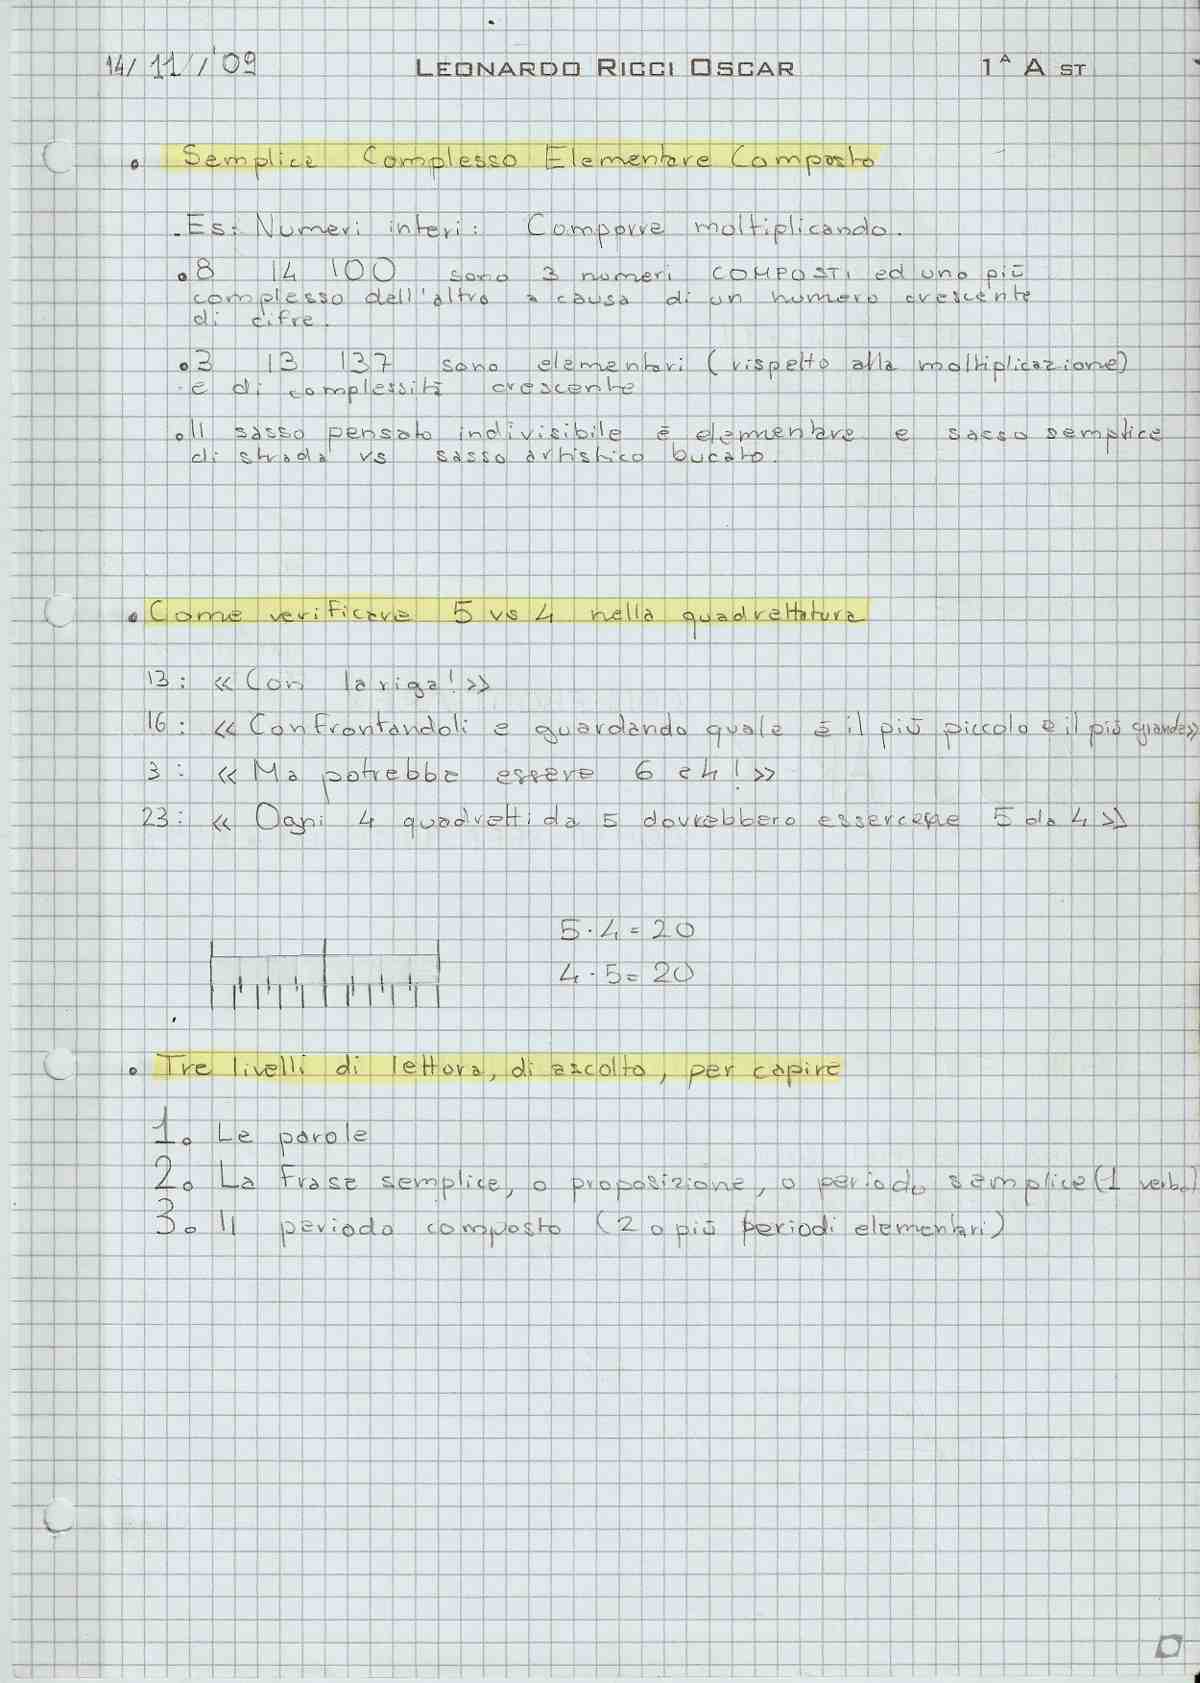 14/11/'09 LEONARDO RICCI OSCAR 1^A A ST
• Semplice Complesso Elementare Composto
. Es: Numeri interi: Comporre moltiplicando.
• 8 14 100 sono 3 numeri COMPOSTI ed uno più
complesso dell'altro a causa di un numero crescente
di cifre.
• 3 13 137 sono elementari (rispetto alla moltiplicazione)
e di complessità crescente
• Il sasso pensato indivisibile è elementare e sasso semplice
di strada vs sasso artistico bucato.
• Come verificare 5 vs 4 nella quadrettatura
13: « Con la riga! »
16: « Confrontandoli e guardando quale è il più piccolo e il più grande»
3: « Ma potrebbe essere 6 e 4! »
23: « Ogni 4 quadretti da 5 dovrebbero essercene 5 da 4 »
5 · 4 = 20
4 · 5 = 20
• Tre livelli di lettura, di ascolto, per capire
1. Le parole
2. La frase semplice, o proposizione, o periodo semplice (1 verbo)
3. Il periodo composto (2 o più periodi elementari)